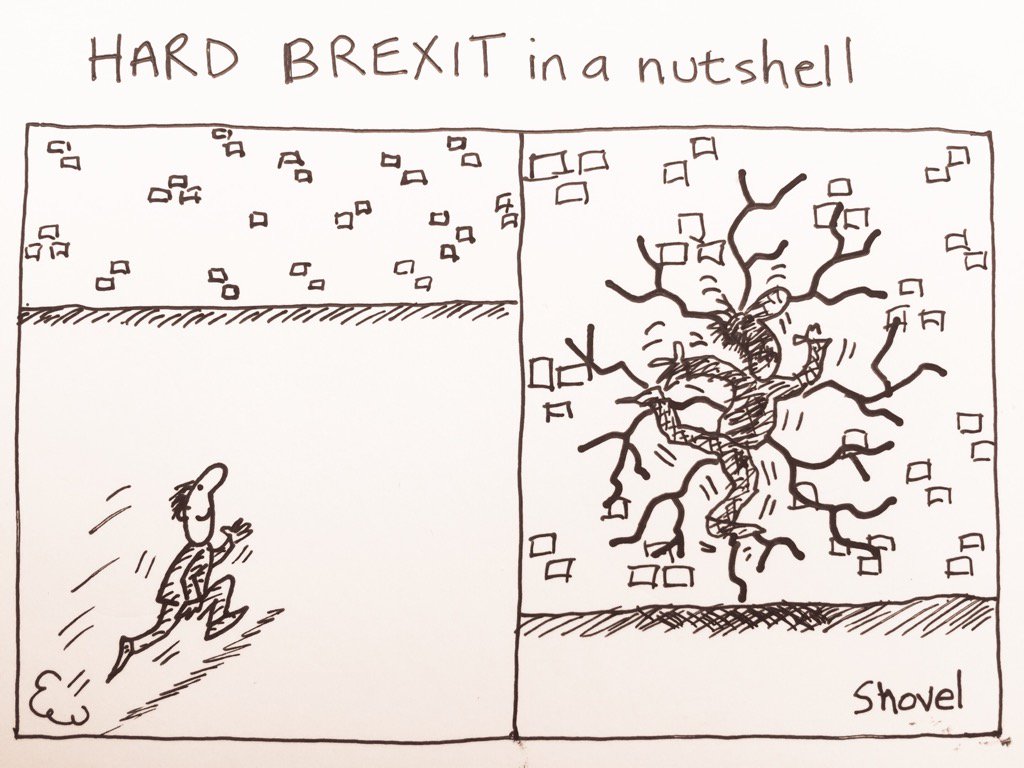 HARD BREXIT in a nutshell
Shovel